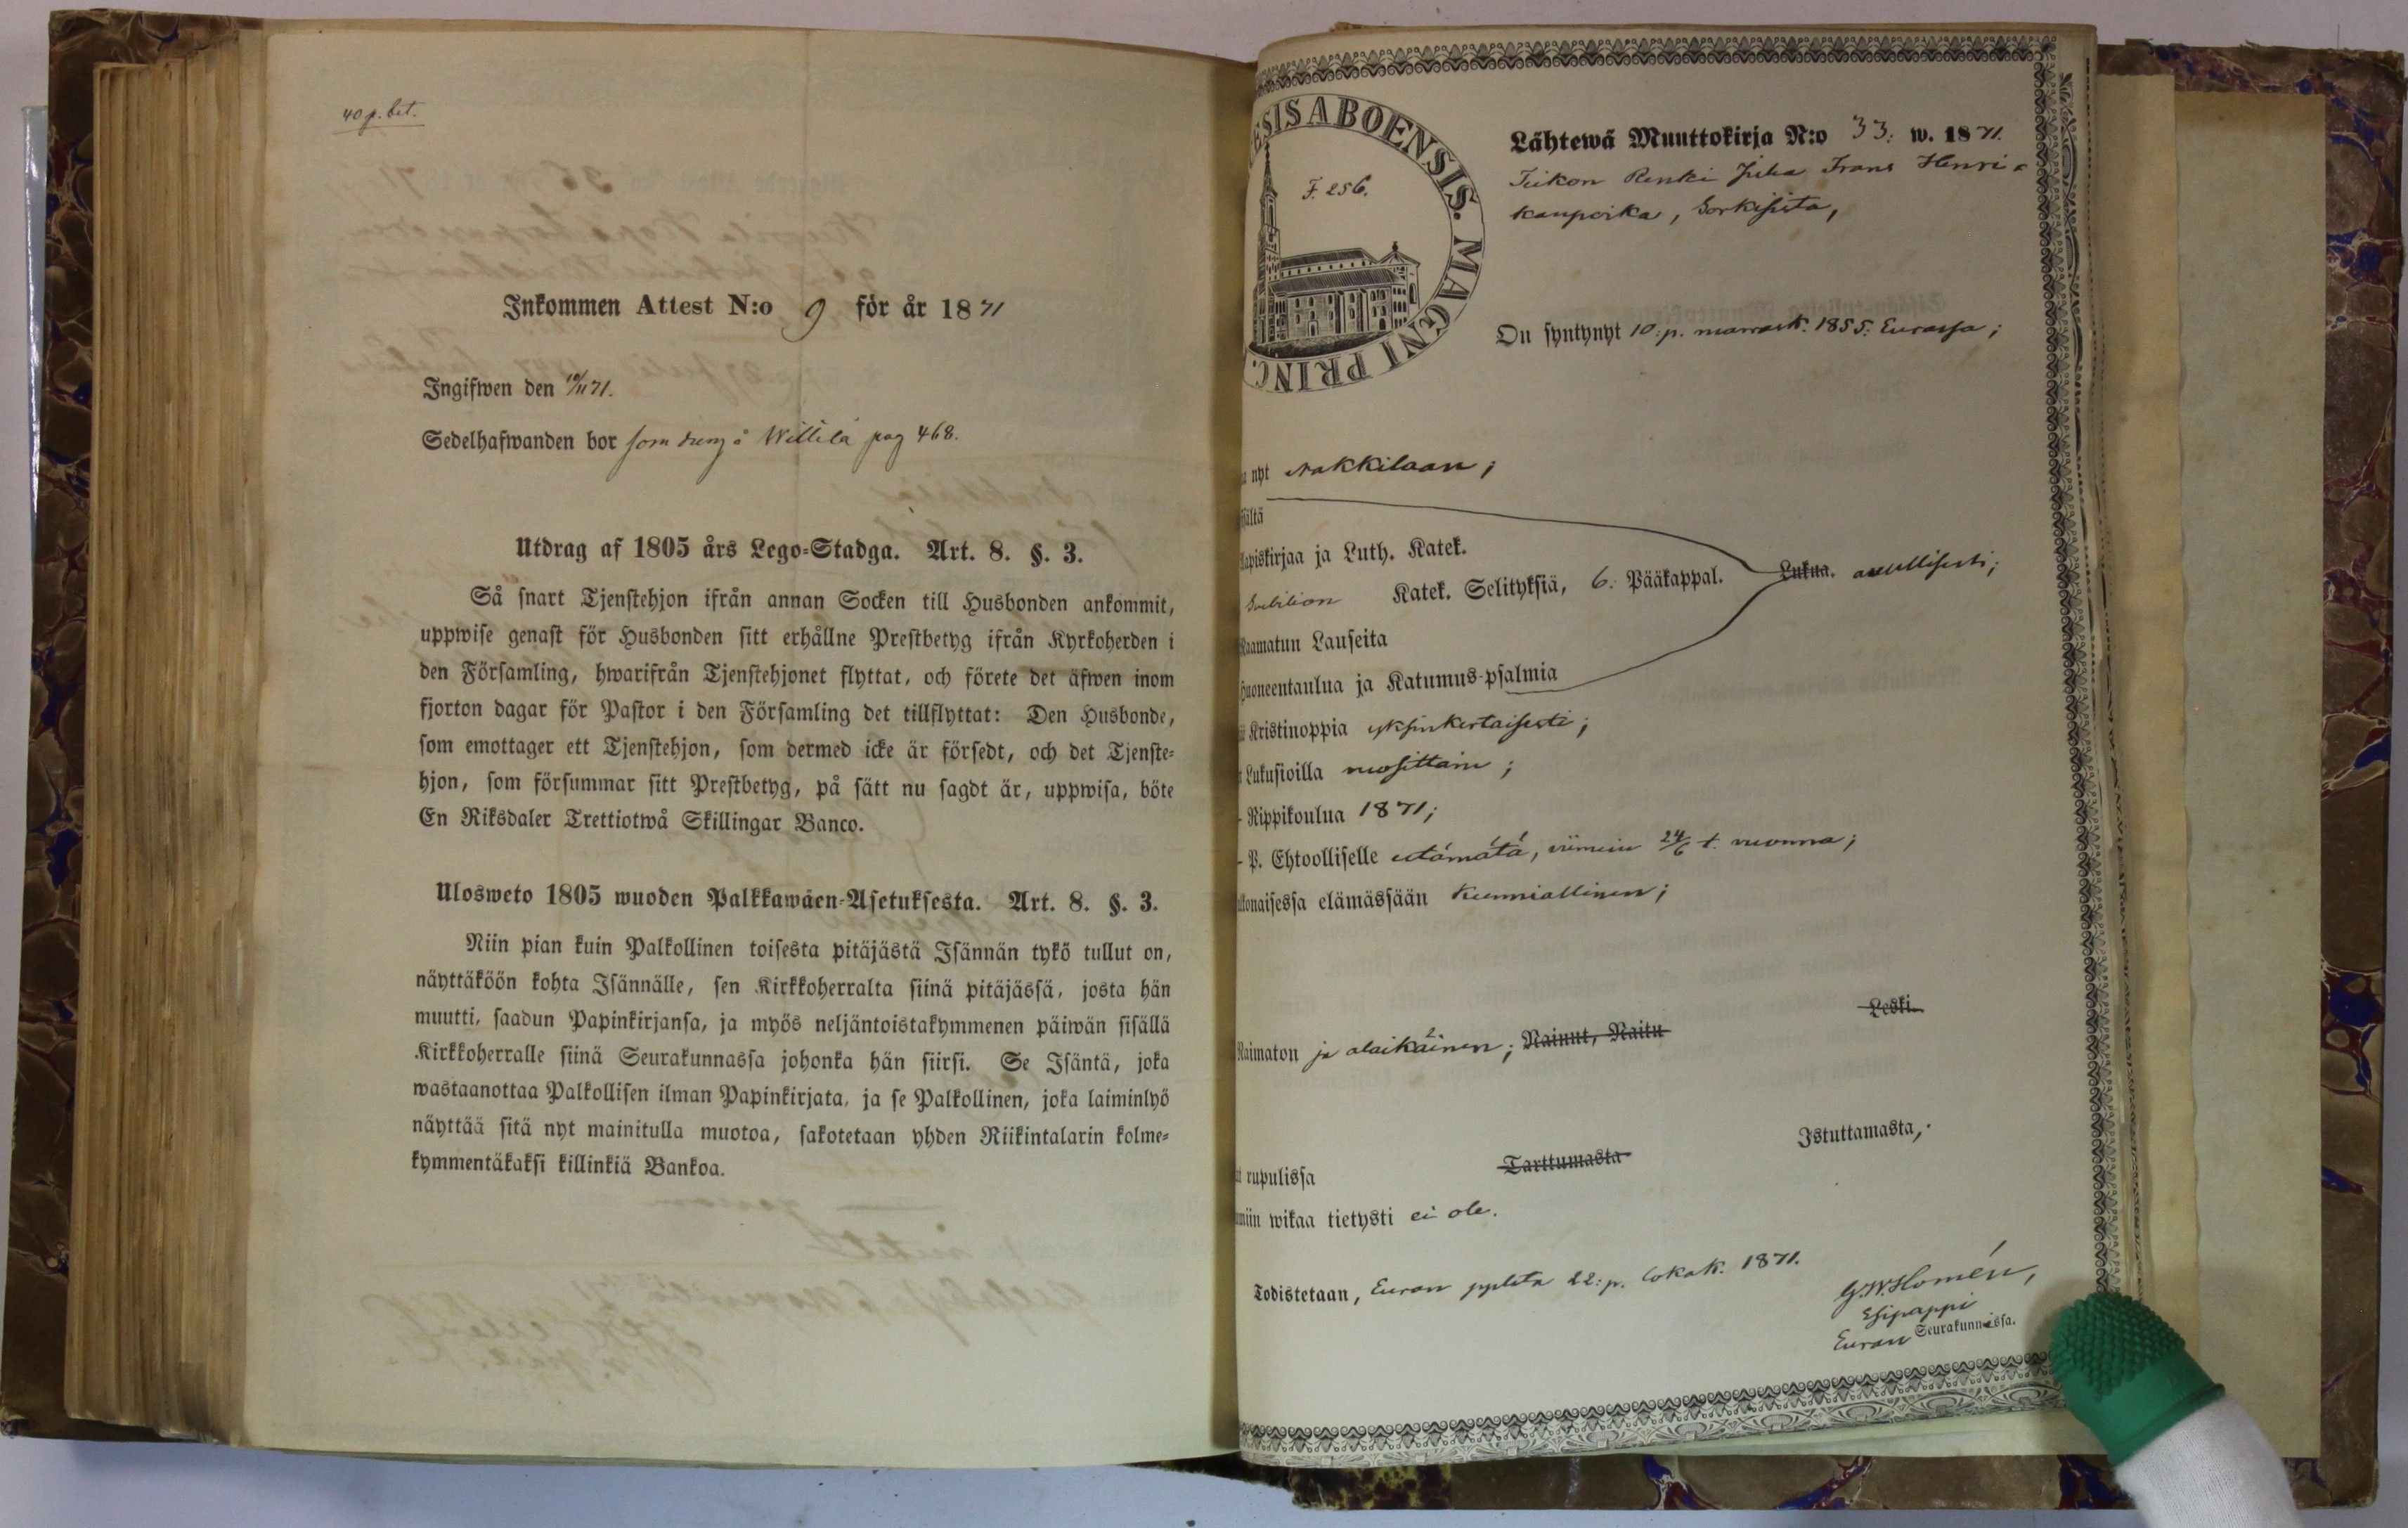 40 p. bet.
Inkommen Attest N:o 9 för år 1871
Ingifwen den 10/11 71.
Sedelhafwanden bor som dreng å Willilä pag 468.
Utdrag af 1805 års Lego-Stadga. Art. 8. §. 3.
Så snart Tjenstehjon ifrån annan Socken till Husbonden ankommit,
uppwise genast för Husbonden sitt erhållne Prestbetyg ifrån Kyrkoherden i
den Församling, hwarifrån Tjenstehjonet flyttat, och förete det äfwen inom
fjorton dagar för Pastor i den Församling det tillflyttat: Den Husbonde,
som emottager ett Tjenstehjon, som dermed icke är försedt, och det Tjenste-
hjon, som försummar sitt Prestbetyg, på sätt nu sagdt är, uppwisa, böte
En Riksdaler Trettiotwå Skillingar Banco.
Ulosweto 1805 wuoden Palkkawäen-Asetuksesta. Art. 8. §. 3.
Niin pian kuin Palkollinen toisesta pitäjästä Isännän tykö tullut on,
näyttäköön kohta Isännälle, sen Kirkkoherralta siinä pitäjässä, josta hän
muutti, saadun Papinkirjansa, ja myös neljäntoistakymmenen päiwän sisällä
Kirkkoherralle siinä Seurakunnassa johonka hän siirsi. Se Isäntä, joka
wastaanottaa Palkollisen ilman Papinkirjata, ja se Palkollinen, joka laiminlyö
näyttää sitä nyt mainitulla muotoa, sakotetaan yhden Riikintalarin kolme-
kymmentäkaksi killinkiä Bankoa.
ESIS ABOENSIS. MAGNI PRINC.
F. 256.
Lähtewä Muuttokirja N:o 33. w. 1871.
Renki Juha Frans Henri-
kanpoika, Sorkisista,
On syntynyt 10:p. marrask. 1855. Eurassa;
nyt Nakkilaan;
ältä
apiskirjaa ja Luth. Katek.
Swebilion Katek. Selityksiä, 6. Pääkappal. Lukua. awullisesti;
Raamatun Lauseita
Huoneentaulua ja Katumus-psalmia
Kristinoppia yksinkertaisesti;
Lukusioilla wuosittain;
- Rippikoulua 1871;
- P. Ehtoolliselle estämätä, wiimein 24/6 t. wuonna;
lkonaisessa elämässään kunniallinen;
Naimaton ja alaikäinen; Nainut, Naitu Leski.
rupulissa Tarttumasta Istuttamasta,
miin wikaa tietysti ei ole.
Todistetaan, Euran pplsta 22:p. lokak. 1871.
G.W.Homén,
Esipappi
Euran Seurakunnassa.